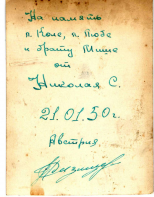 На память
п. Коле, п. Любе
и брату Мише
от
Николая С.
21.01.50г.
Австрия